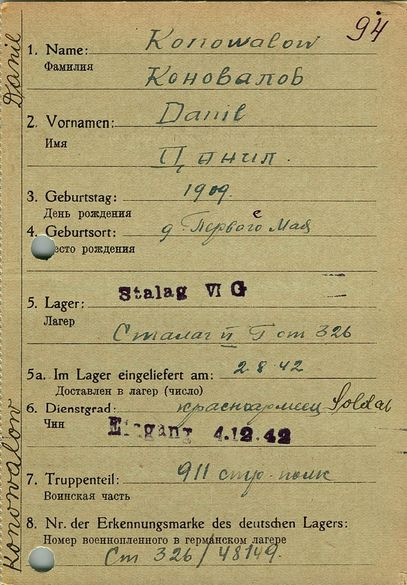 94
1. Name: Konowalow
Фамилия Коновалов
2. Vornamen: Danil
Имя Данил.
3. Geburtstag: 1909.
День рождения
4. Geburtsort: д Первого Мая
есто рождения
5. Lager: Stalag VI G
Лагер Сталаг Г от 326
5a. Im Lager eingeliefert am: 2.8.42
Доставлен в лагер (число)
6. Dienstgrad: красноармеец Soldat
Чин Eingang 4.12.42
7. Truppenteil: 911 стр. полк
Воинская часть
8. Nr. der Erkennungsmarke des deutschen Lagers:
Номер военнопленного в германском лагере
Ст 326/48149.
Konowalow Danil